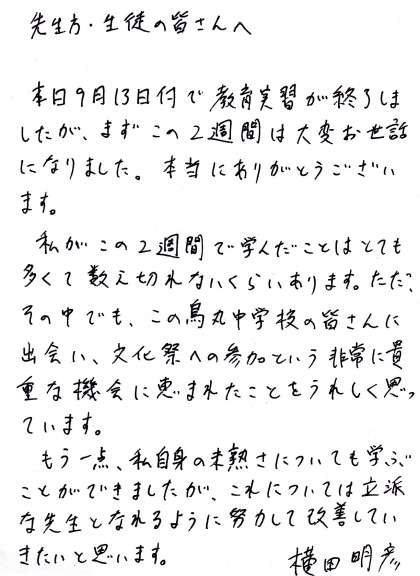 先生方・生徒の皆さんへ
本日9月13日付で教育実習が終了しま
したが、まずこの2週間は大変お世話
になりました。本当にありがとうござい
ます。
私がこの2週間で学んだことはとても
多くて数え切れないくらいあります。ただ、
その中でも、この烏丸中学校の皆さんに
出会い、文化祭への参加という非常に貴
重な機会に恵まれたことをうれしく思っ
ています。
もう一点、私自身の未熟さについても学ぶ
ことができましたが、これについては立派
な先生となれるように努力して改善してい
きたいと思います。 横田明彦